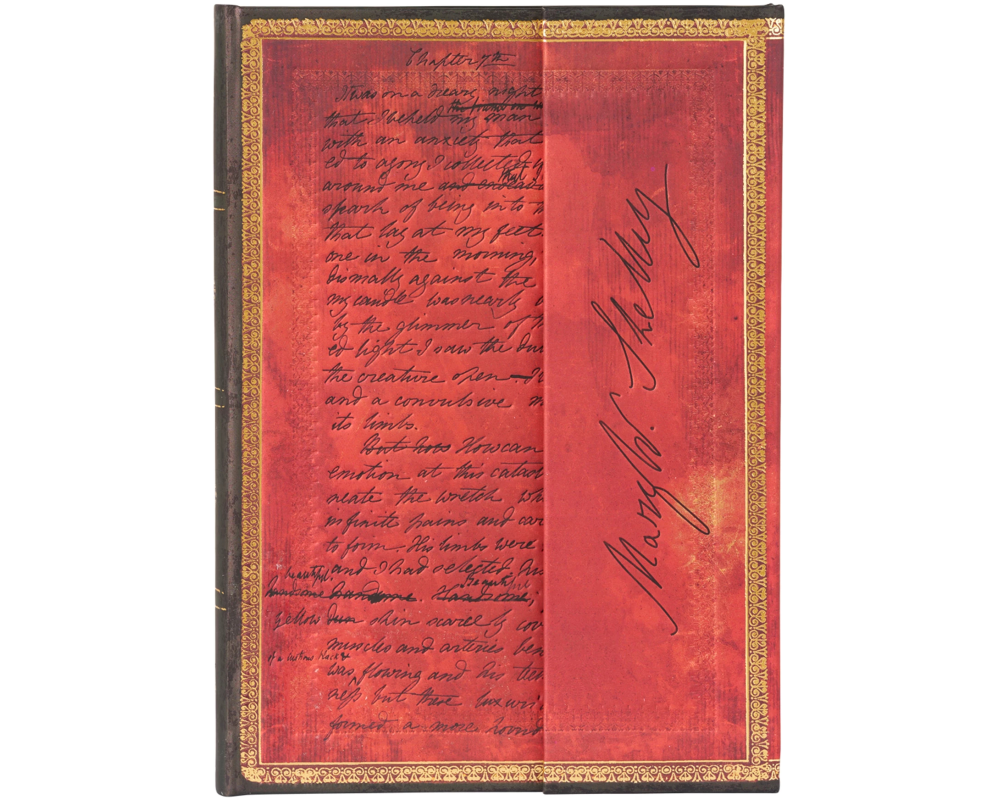 Chapter 7th
It was on a dreary night
that I beheld my man
with an anxiety that
ed to agony I collected
around me and endeavo
that
spark of being into
that lay at my feet
one in the morning,
dismally against the
my candle was nearly
by the glimmer of
ed light I saw the du
the creature open
and a convulsive m
its limbs.
But how How can
emotion at this catas
neate the wretch wh
infinite pains and car
to form. His limbs were
and I had selected
beautiful. handsome handsome. Handsome;
Beautiful
yellow dun skin scarcely cov
muscles and arteries ben
of a lustrous black &
was flowing and his tee
neſs but these luxuri
formed a more horrid
Mary W. Shelley